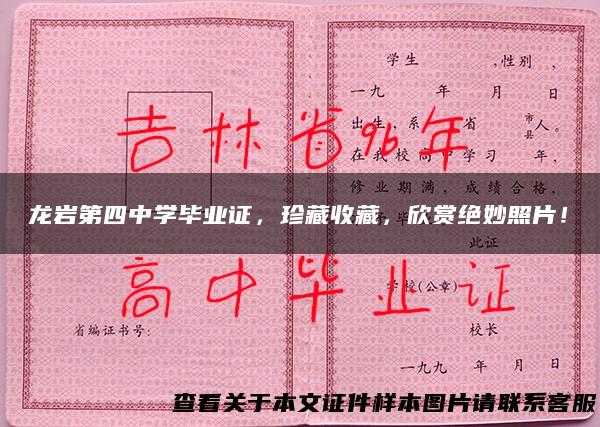 学生 ,性别 ,
一九 年 月 日
吉林省96年
出生,系 省 市县人。
在我校高中学习 年,
修业期满,成绩合格,
龙岩第四中学毕业证，珍藏收藏，欣赏绝妙照片！
此证
高中毕业证
学校(公章)
省编证书号:
校长
一九九 年 月 日
查看关于本文证件样本图片请联系客服